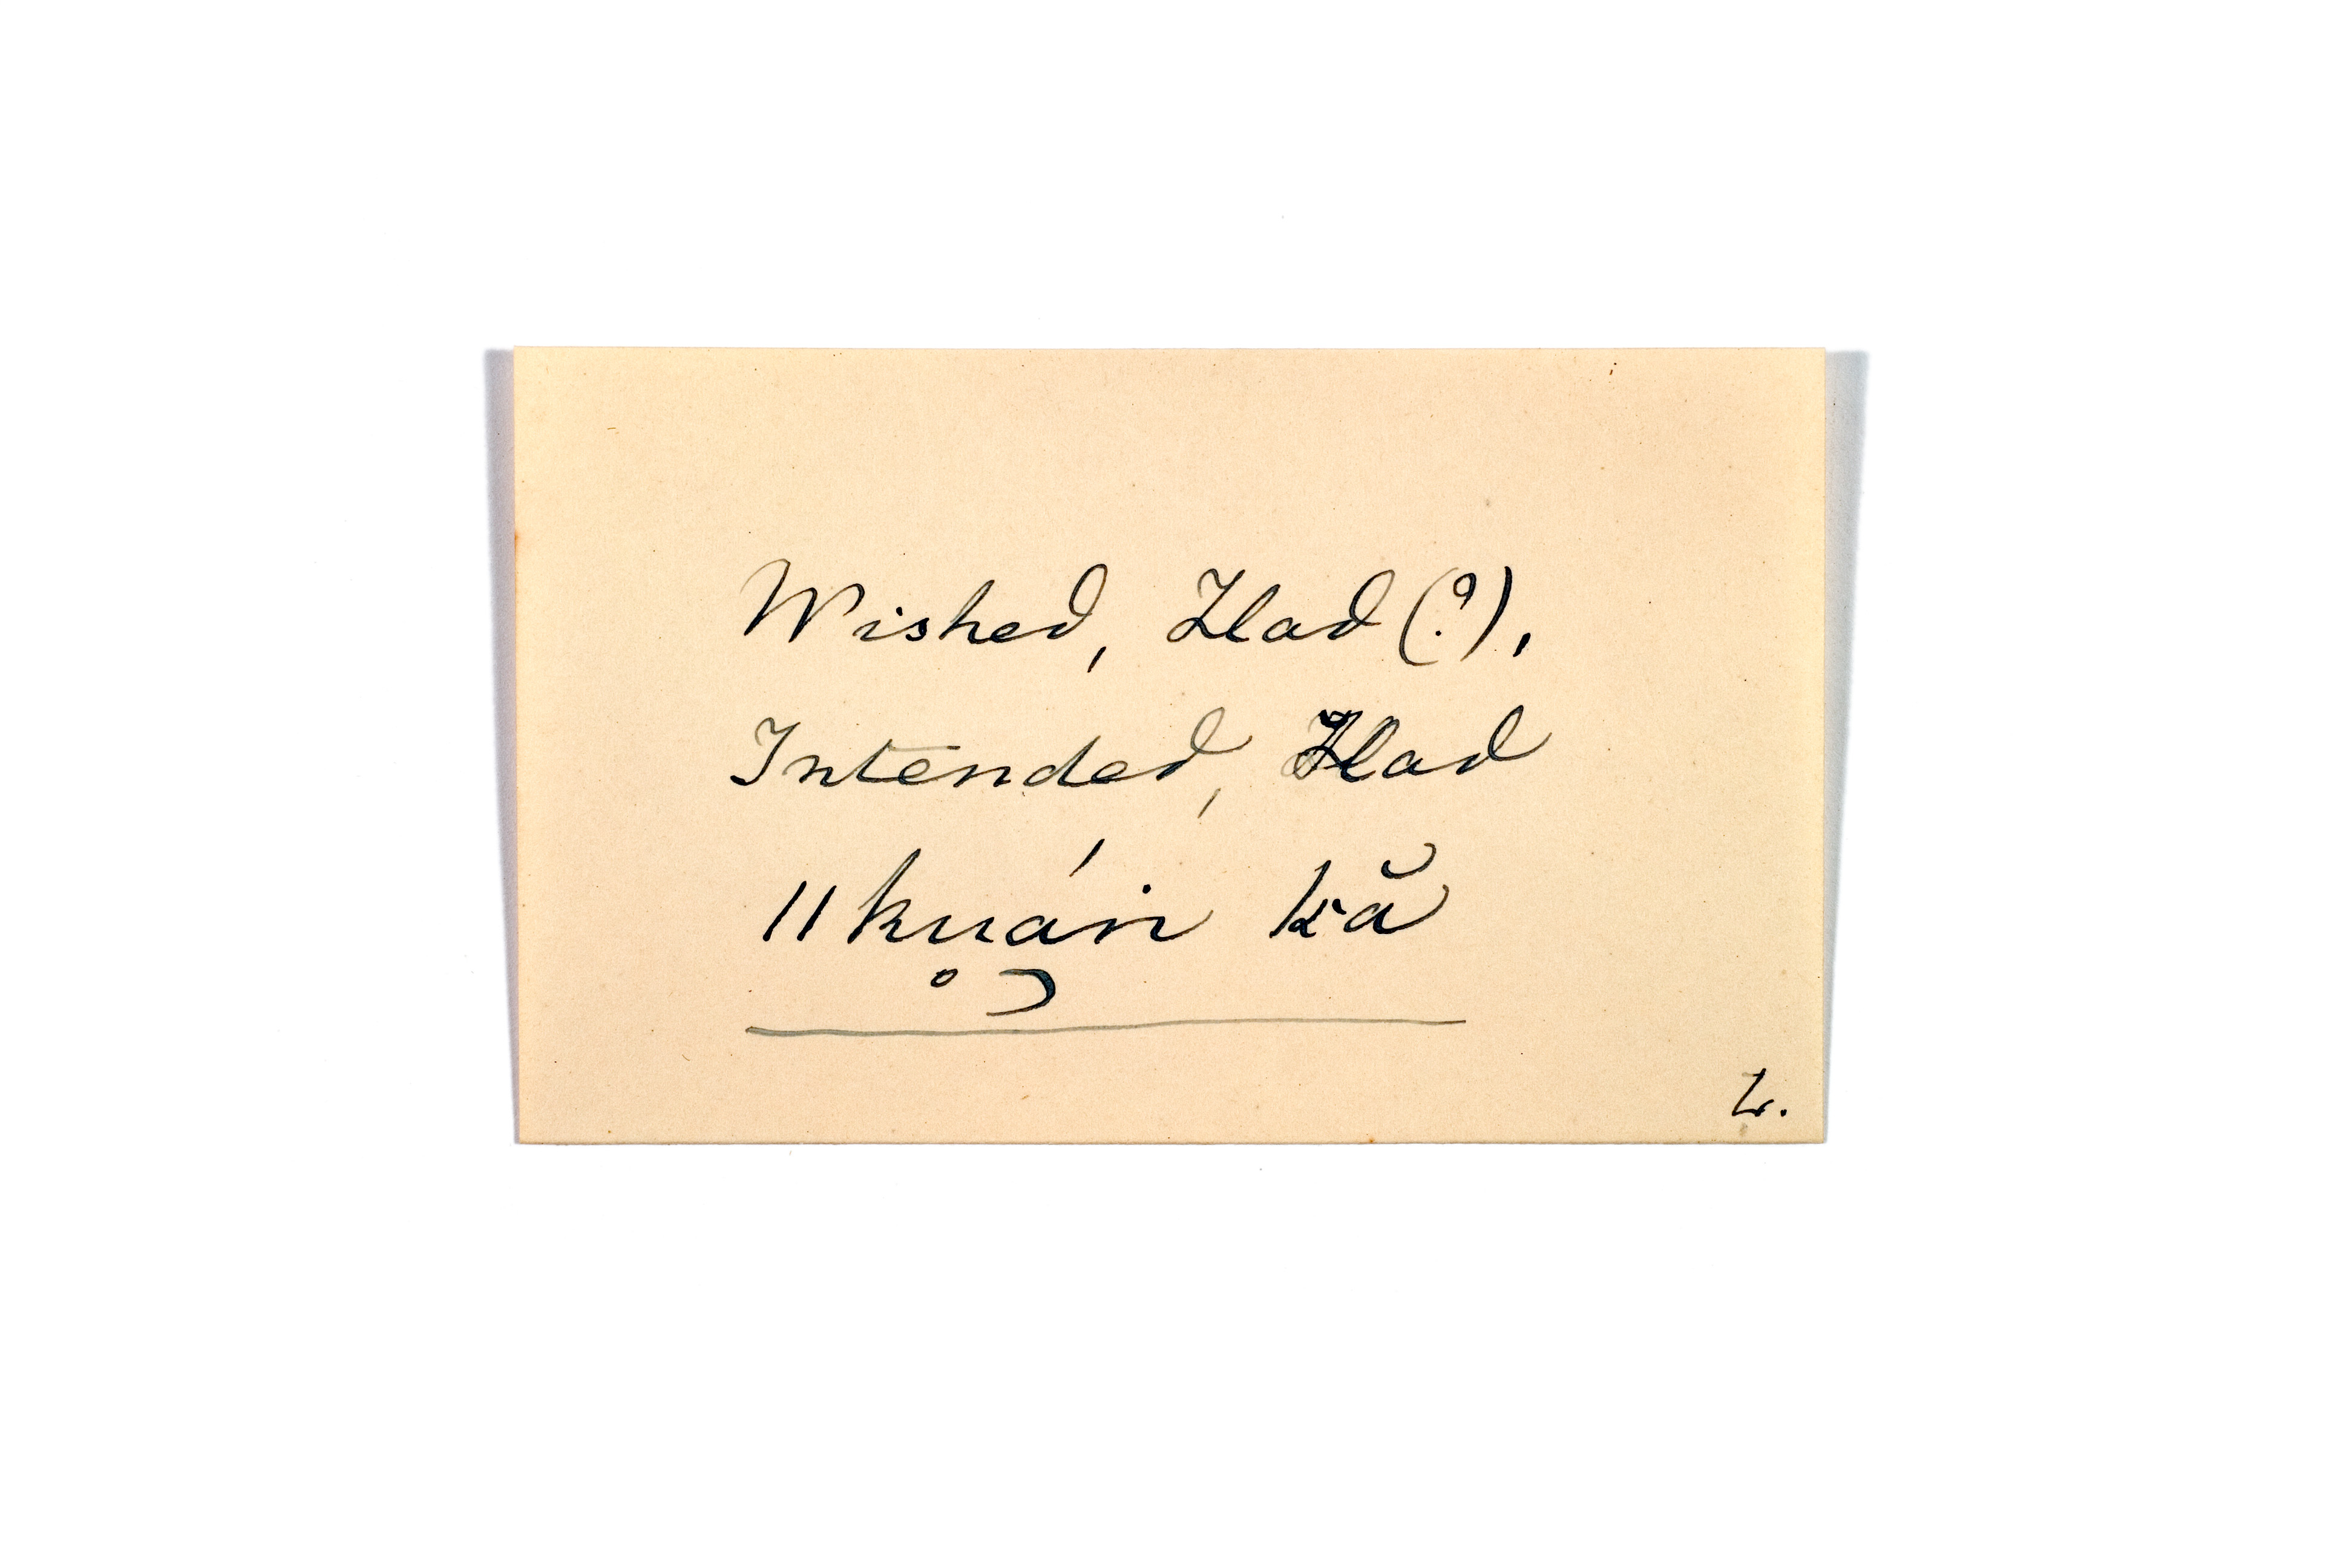 Wished, Had (?),
Intended, Had
ǁku̥á̯n kă
L.